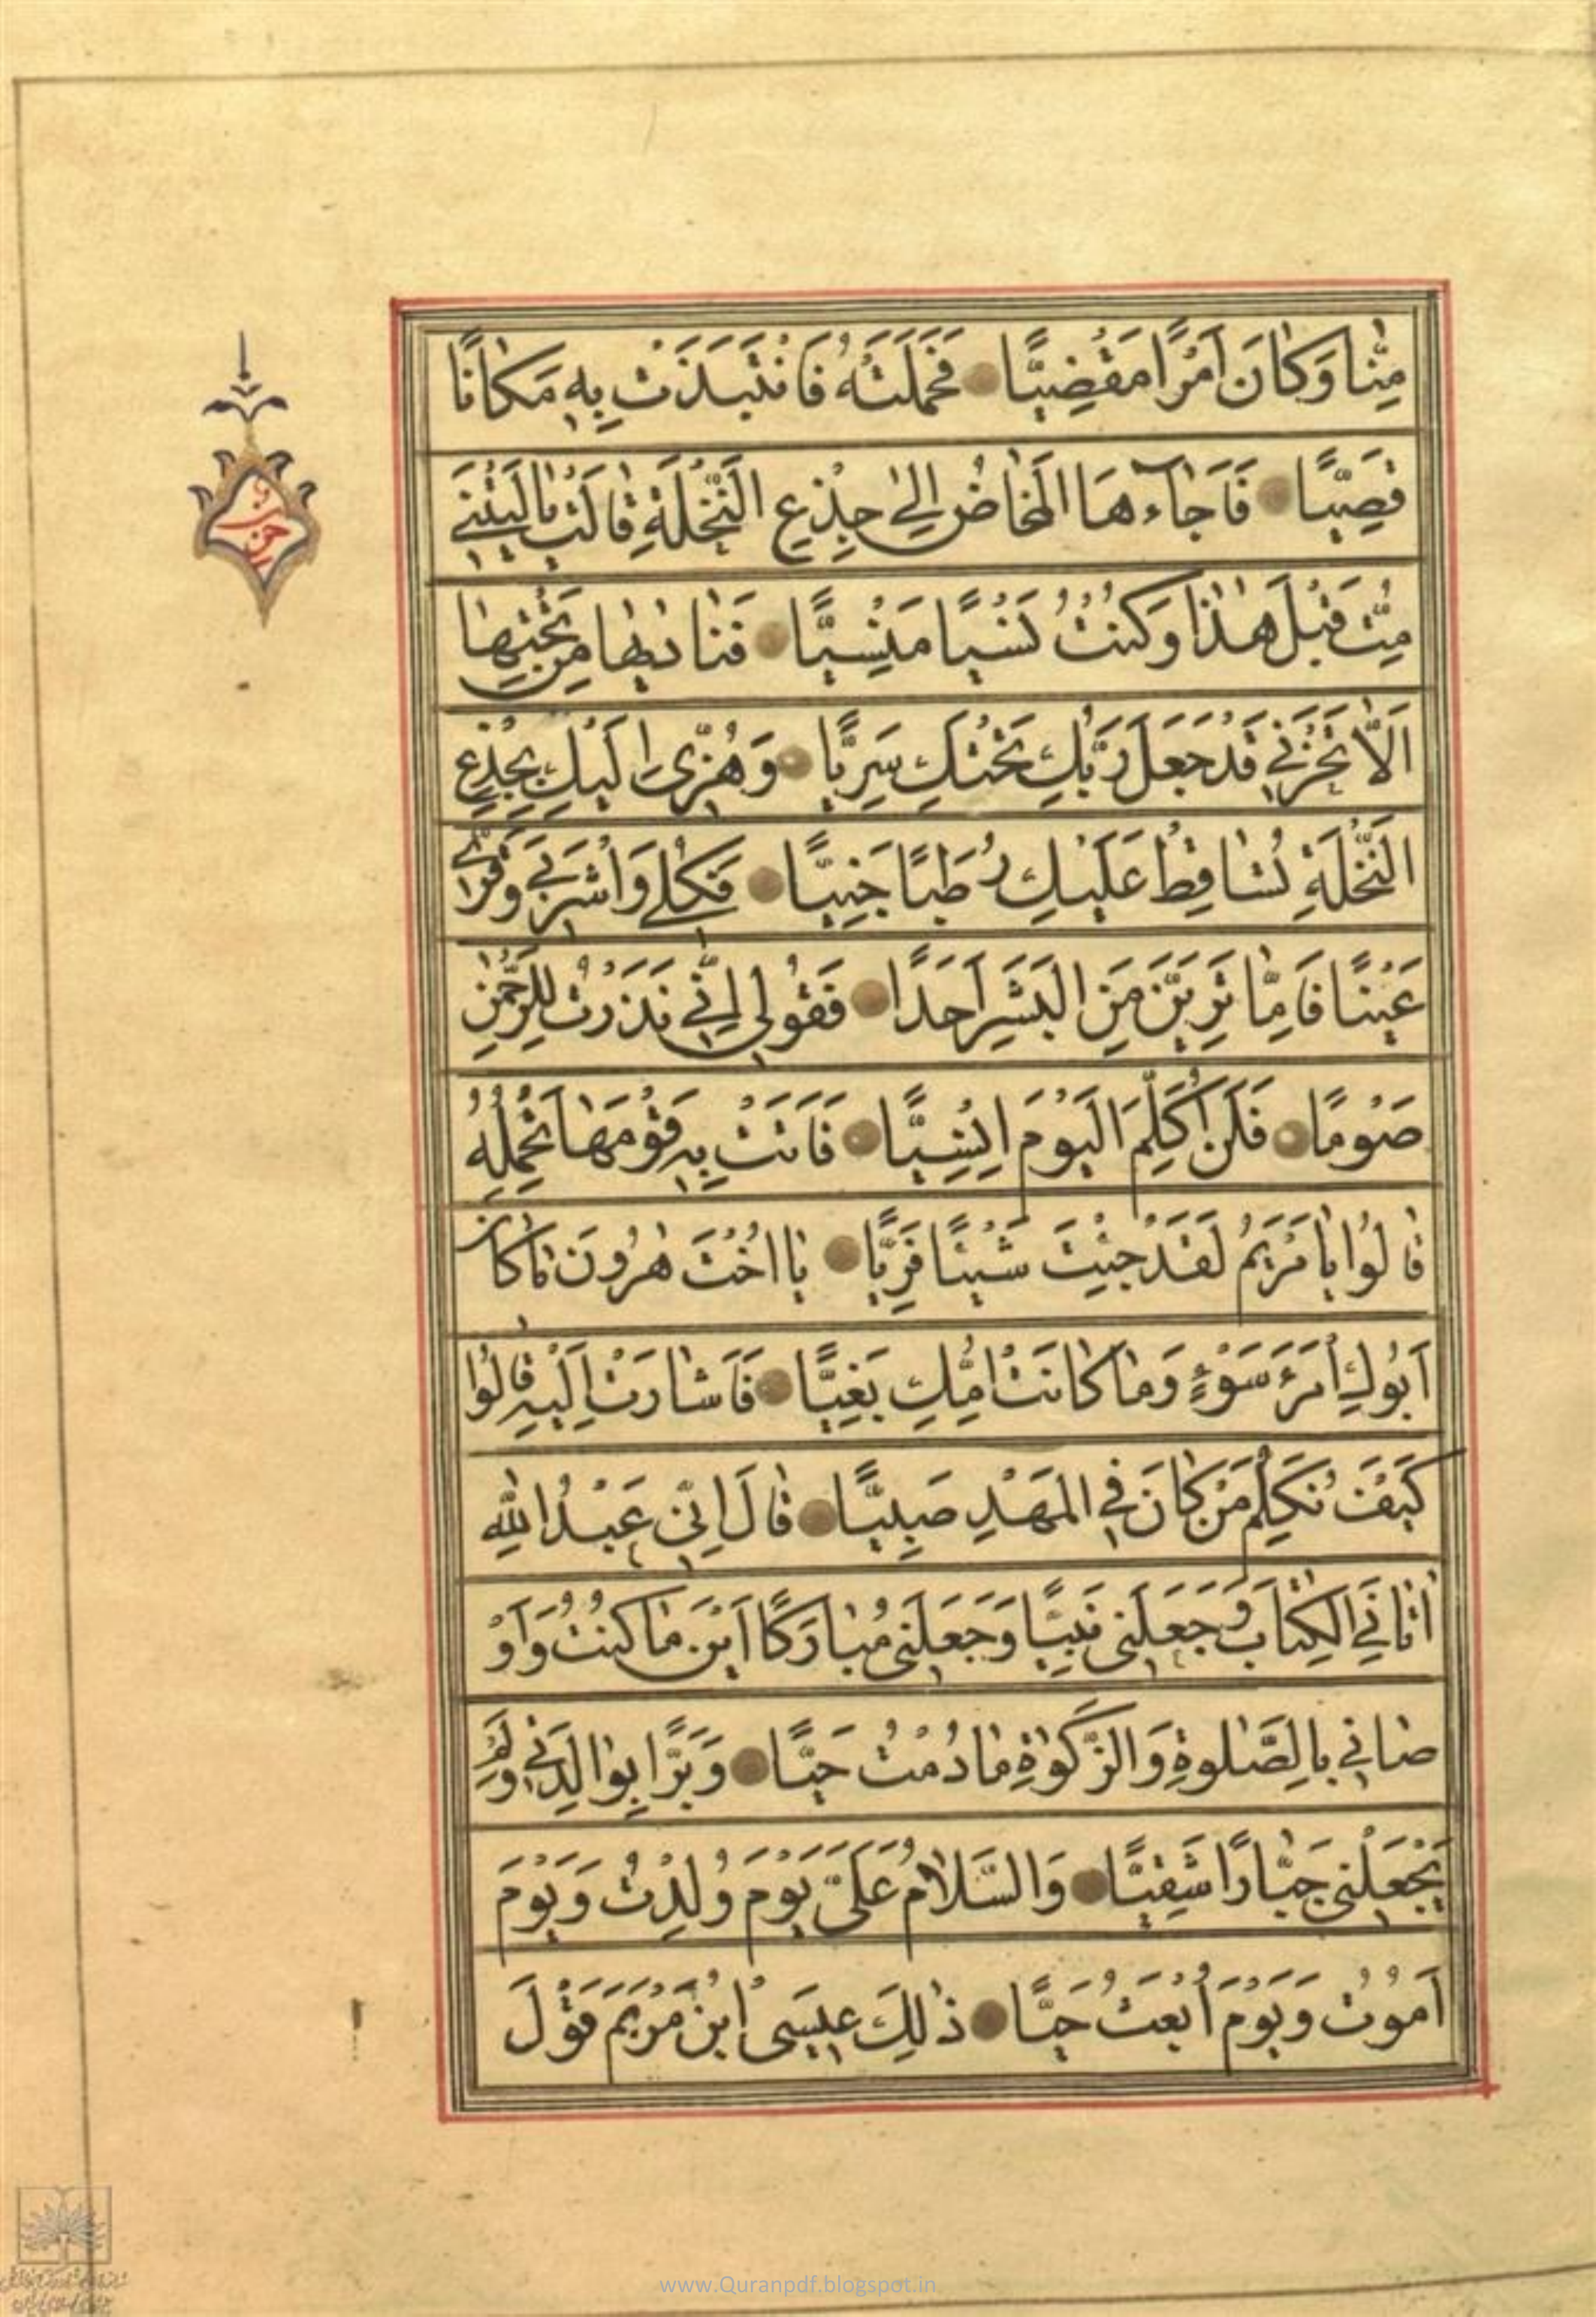 مِنَّا وَكَانَ اَمْرًا مَقْضِيًّا فَحَمَلَتْهُ فَانْتَبَذَتْ بِهِ مَكَانًا
قَصِيًّا فَاَجَاۤءَهَا الْمَخَاضُ اِلىٰ جِذْعِ النَّخْلَةِ قَالَتْ يَالَيْتَنِي
مِتُّ قَبْلَ هٰذَا وَكُنْتُ نَسْيًا مَنْسِيًّا فَنَادٰيهَا مِنْ تَحْتِهَا
اَلَّا تَحْزَنِي قَدْ جَعَلَ رَبُّكِ تَحْتَكِ سَرِيًّا وَهُزِّي اِلَيْكِ بِجِذْعِ
النَّخْلَةِ تُسَاقِطْ عَلَيْكِ رُطَبًا جَنِيًّا فَكُلِي وَاشْرَبِي وَقَرِّي
عَيْنًا فَاِمَّا تَرَيِنَّ مِنَ الْبَشَرِ اَحَدًا فَقُولِي اِنِّي نَذَرْتُ لِلرَّحْمٰنِ
صَوْمًا فَلَنْ اُكَلِّمَ الْيَوْمَ اِنْسِيًّا فَاَتَتْ بِهِ قَوْمَهَا تَحْمِلُهُ
قَالُوا يَا مَرْيَمُ لَقَدْ جِئْتِ شَيْئًا فَرِيًّا يَا اُخْتَ هٰرُونَ مَا كَانَ
اَبُوكِ امْرَءَ سَوْءٍ وَمَا كَانَتْ اُمُّكِ بَغِيًّا فَاَشَارَتْ اِلَيْهِ قَالُوا
كَيْفَ نُكَلِّمُ مَنْ كَانَ فِي الْمَهْدِ صَبِيًّا قَالَ اِنِّي عَبْدُ اللّٰهِ
اٰتَانِيَ الْكِتَابَ وَجَعَلَنِي نَبِيًّا وَجَعَلَنِي مُبَارَكًا اَيْنَ مَا كُنْتُ وَاَوْ
صَانِي بِالصَّلٰوةِ وَالزَّكٰوةِ مَا دُمْتُ حَيًّا وَبَرًّا بِوَالِدَتِي وَلَمْ
يَجْعَلْنِي جَبَّارًا شَقِيًّا وَالسَّلَامُ عَلَيَّ يَوْمَ وُلِدْتُ وَيَوْمَ
اَمُوتُ وَيَوْمَ اُبْعَثُ حَيًّا ذٰلِكَ عِيسَى ابْنُ مَرْيَمَ قَوْلَ
حزب
www.Quranpdf.blogspot.in